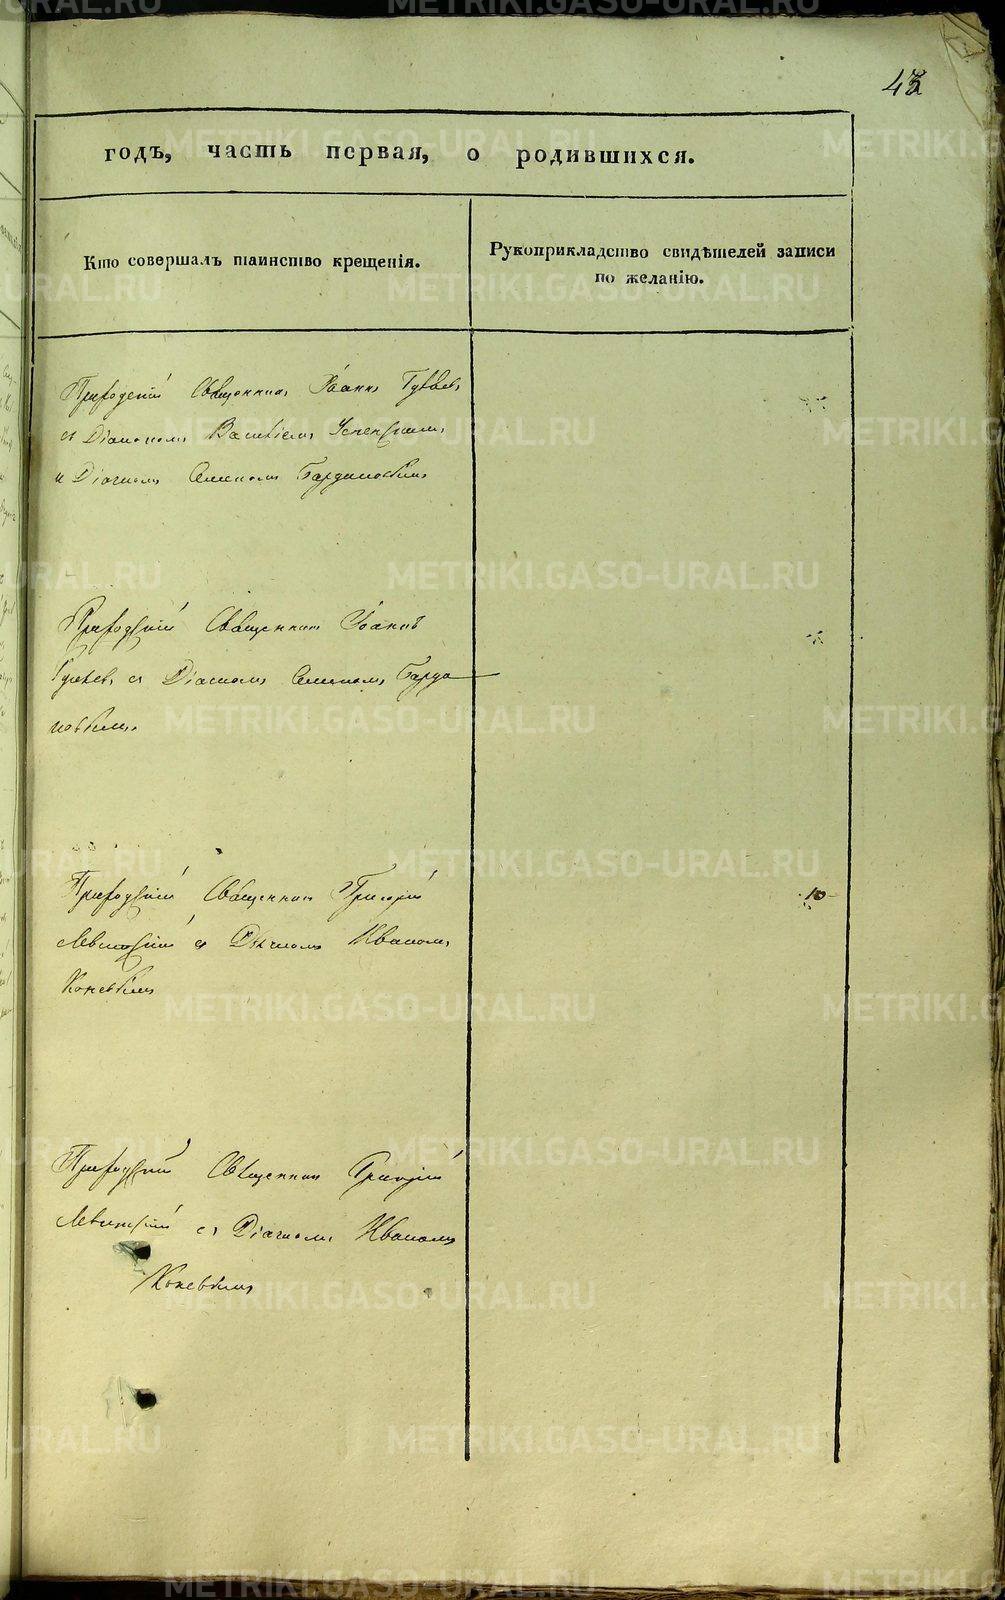 METRIKI.GASO-URAL.RU
годъ, часть первая, о родившихся.
Кто совершалъ таинство крещенія.
Рукоприкладство свидѣтелей записи
по желанію.
Приходскій Священникъ Іоаннъ
съ Діакономъ Василіемъ Успенскимъ
и Діячкомъ Семеномъ
Приходскій Священникъ Іоаннъ
съ Діячкомъ Семеномъ
Приходскій Священникъ Григорій
Левитскій съ Дьячкомъ Иваномъ
Коневымъ
Приходскій Священникъ Григорій
Левитскій съ Діячкомъ Иваномъ
Коневымъ